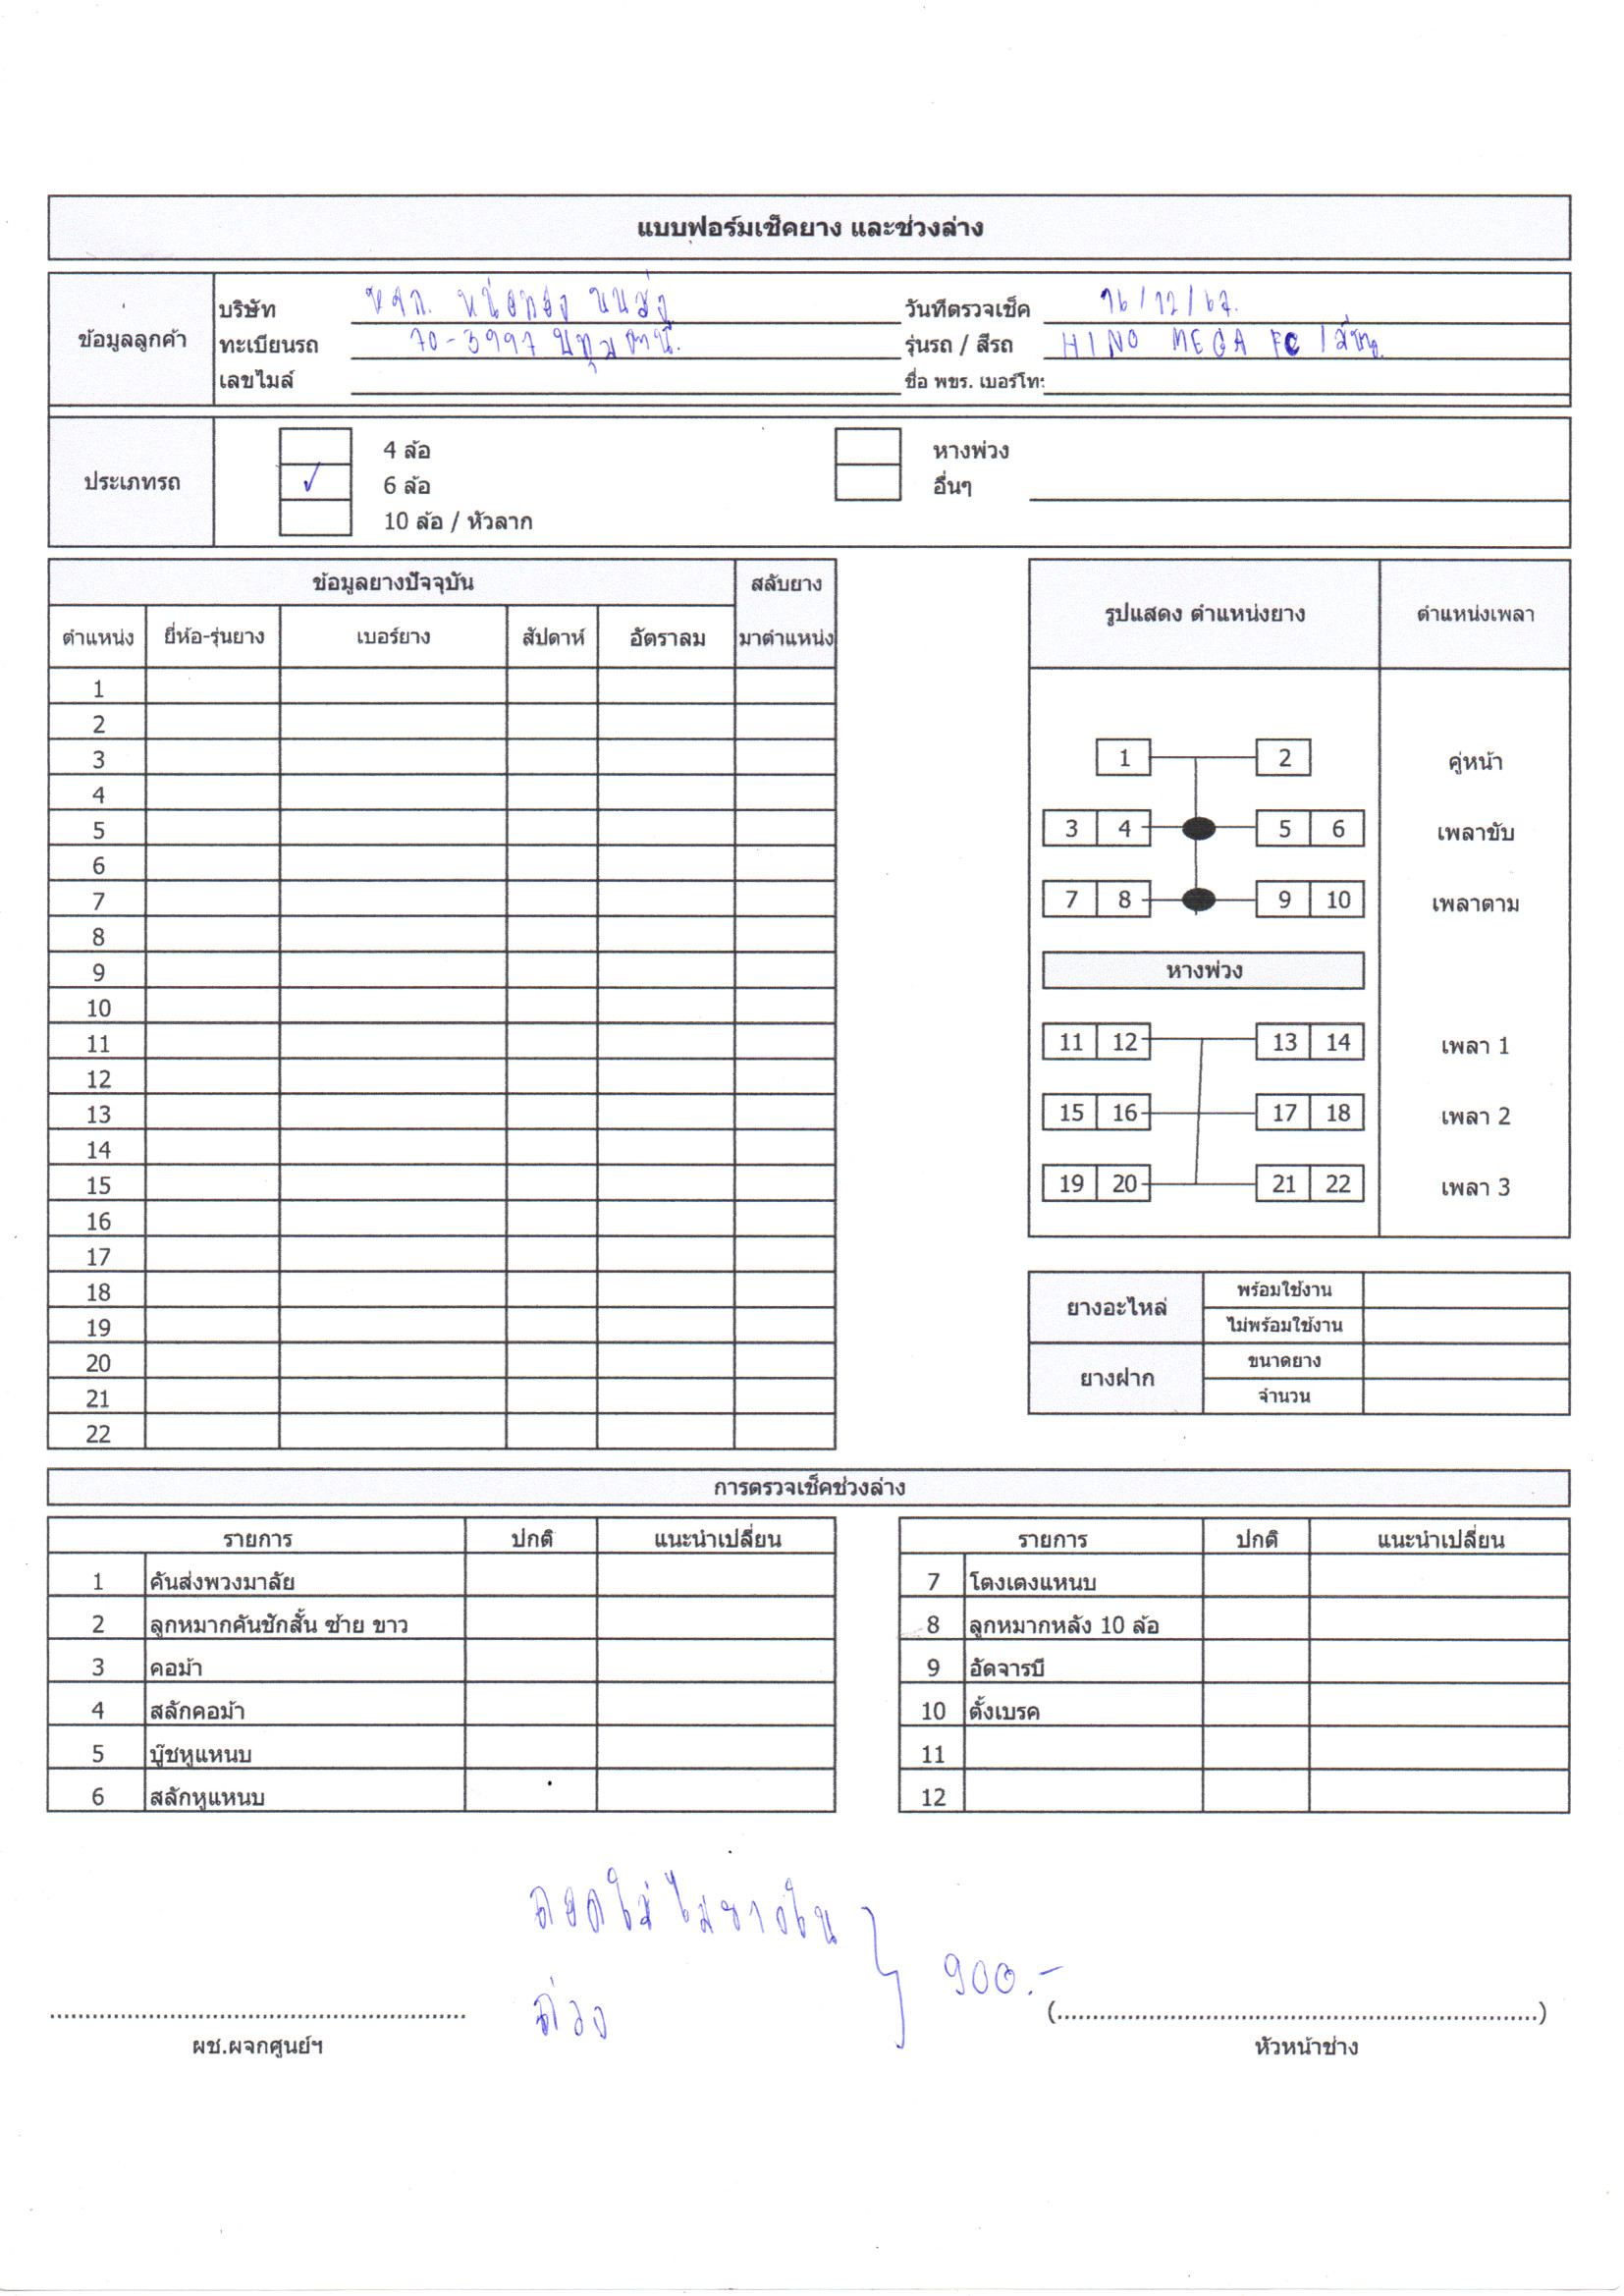 แบบฟอร์มเช็คยาง และช่วงล่าง
ข้อมูลลูกค้า
บริษัท หจก. หน่อทอง ขนส่ง
วันที่ตรวจเช็ค 16/12/67.
ทะเบียนรถ 70-3997 ปทุมธานี.
รุ่นรถ / สีรถ HINO MEGA FC /
เลขไมล์
ชื่อ พขร. เบอร์โทร
ประเภทรถ
4 ล้อ
หางพ่วง
✓ 6 ล้อ
อื่นๆ
10 ล้อ / หัวลาก
ข้อมูลยางปัจจุบัน สลับยาง
ตำแหน่ง ยี่ห้อ-รุ่นยาง เบอร์ยาง สัปดาห์ อัตราลม มาตำแหน่ง
1
2
3
4
5
6
7
8
9
10
11
12
13
14
15
16
17
18
19
20
21
22
รูปแสดง ตำแหน่งยาง ตำแหน่งเพลา
1 2 คู่หน้า
3 4 5 6 เพลาขับ
7 8 9 10 เพลาตาม
หางพ่วง
11 12 13 14 เพลา 1
15 16 17 18 เพลา 2
19 20 21 22 เพลา 3
ยางอะไหล่ พร้อมใช้งาน
ไม่พร้อมใช้งาน
ยางฝาก ขนาดยาง
จำนวน
การตรวจเช็คช่วงล่าง
รายการ ปกติ แนะนำเปลี่ยน
1 คันส่งพวงมาลัย
2 ลูกหมากคันชักสั้น ซ้าย ขาว
3 คอม้า
4 สลักคอม้า
5 บู๊ชหูแหนบ
6 สลักหูแหนบ
รายการ ปกติ แนะนำเปลี่ยน
7 โตงเตงแหนบ
8 ลูกหมากหลัง 10 ล้อ
9 อัดจารบี
10 ตั้งเบรค
11
12
900.-
ผช.ผจกศูนย์ฯ
(....................)
หัวหน้าช่าง